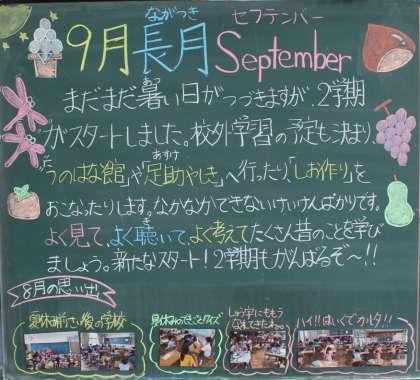 ながつき セプテンバー
9月長月September
まだまだ暑い日がつづきますが、2学期
がスタートしました。校外学習の予定も決まり、
「うのはな館」や「足助やしき」へ行ったり、「しお作り」を
おこなったりします。なかなかできないけいけんばかりです。
よく見て、よく聴いて、よく考えてたくさん昔のことを学び
ましょう。新たなスタート！2学期もがんばるぞ〜！！
8月の思い出
夏休み前さい後の学校
夏休みのできごとクイズ
しゅう字にもう
なれてきたね。
ハイ！！はいくでカルタ！！